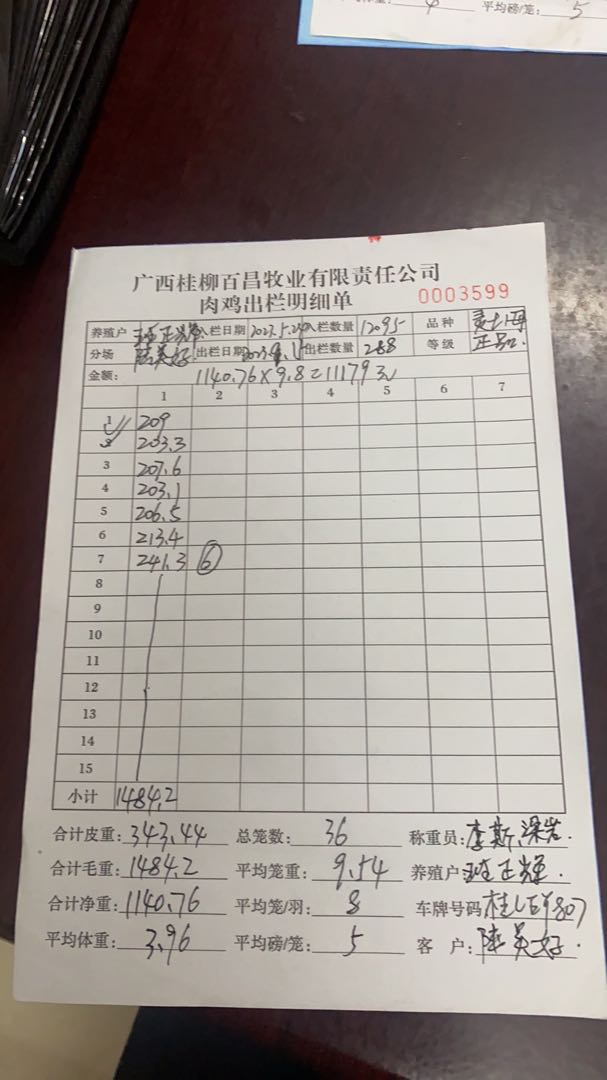 平均磅/笼: 5
广西桂柳百昌牧业有限责任公司
肉鸡出栏明细单 0003599
养殖户 入栏日期 入栏数量 12095 品种
分场 陆英好 出栏日期 出栏数量 288 等级 正品.
金额: 1140.76×9.8=11179元
1 2 3 4 5 6 7
1 209
2 203.3
3 207.6
4 203.1
5 206.5
6 213.4
7 241.3 6
8
9
10
11
12
13
14
15
小计 1484.2
合计皮重: 343.44 总笼数: 36 称重员: 李斯.
合计毛重: 1484.2 平均笼重: 9.54 养殖户: 班正辉
合计净重: 1140.76 平均笼/羽: 8 车牌号码
平均体重: 3.96 平均磅/笼: 5 客 户: 陆英好.